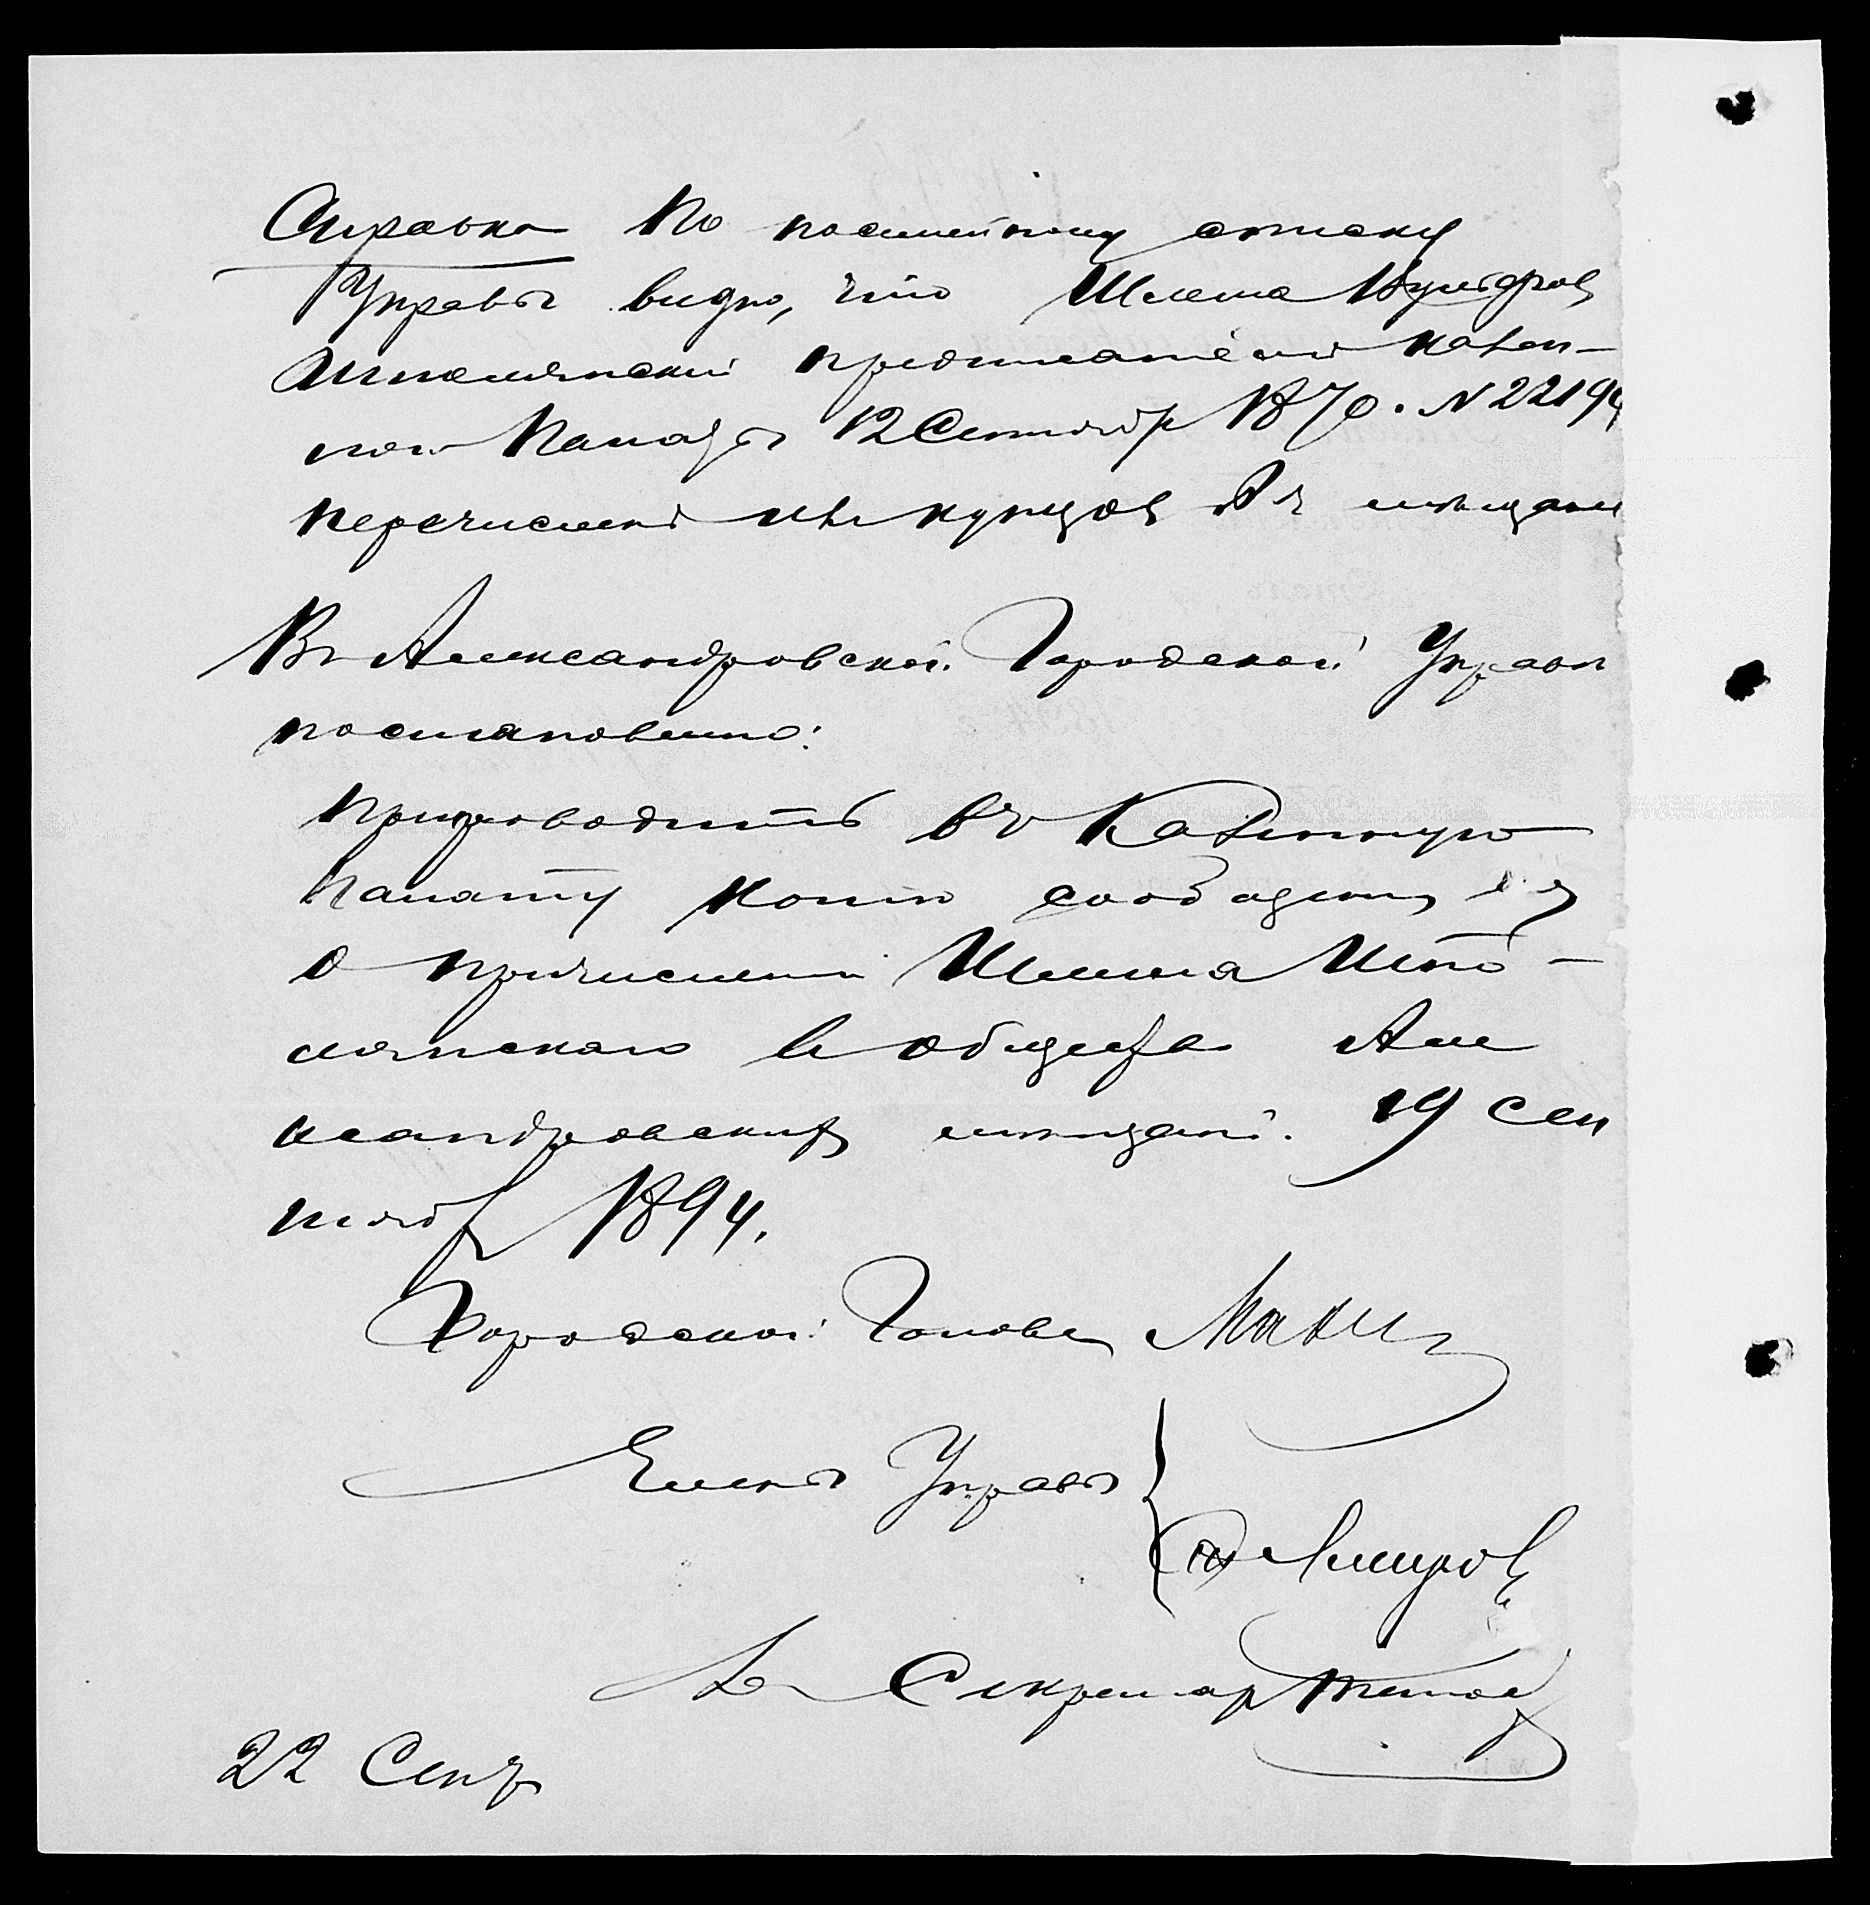 Справка По посемейному списку
Управы видно, что Шлема Вульфов
Шполянский предписанiемъ Казен-
ной Палаты 12 Сентября 1870. N 2219
перечисленъ изъ купцовъ въ мѣщане
Въ Александровской Городской Управѣ
постановлено:
Препроводить въ Казенную
Палату копiю сообщенiя ея
о причисленiи Шлемы Шпо-
лянскаго въ общество Але
ксандровскихъ мѣщанъ. 19 Сен
тября 1894.
Городской Голова
Члены Управы
Секретарь
22 Сент